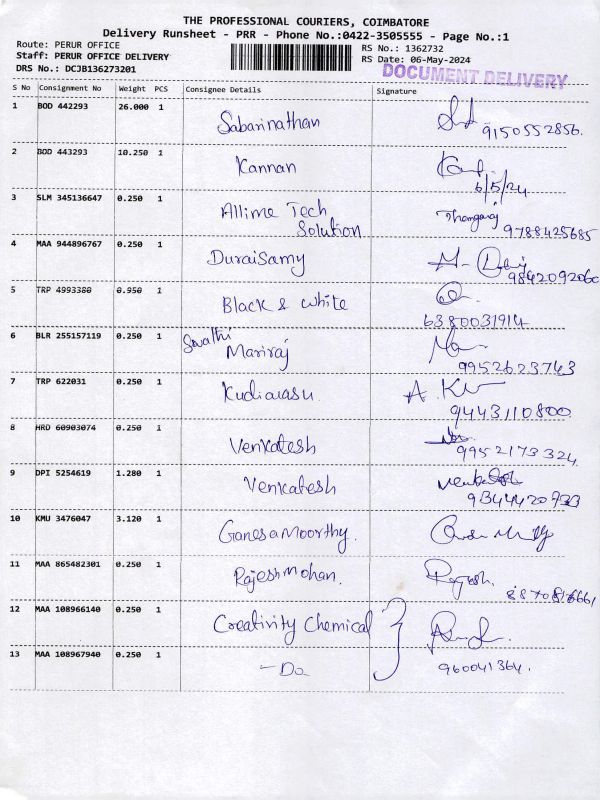 THE PROFESSIONAL COURIERS, COIMBATORE
Delivery Runsheet - PRR - Phone No.:0422-3505555 - Page No.:1
Route: PERUR OFFICE RS No.: 1362732
Staff: PERUR OFFICE DELIVERY RS Date: 06-May-2024
DRS No.: DCJB136273201 DOCUMENT DELIVERY
S No Consignment No Weight PCS Consignee Details Signature
1 BOD 442293 26.000 1 Sabarinathan 9150552856.
2 BOD 443293 10.250 1 Kannan
6/5/24
3 SLM 345136647 0.250 1 Allime Tech Thangaraj
Solution 9788425685
4 MAA 944896767 0.250 1 DuraiSamy
9842092060
5 TRP 4993380 0.950 1 Black & white
6380031914
6 BLR 255157119 0.250 1 Swathi
Mariraj
9952623743
7 TRP 622031 0.250 1 Kudiarasu.
9443110800
8 HRD 60903074 0.250 1 Venkatesh 9952173324
9 DPI 5254619 1.280 1 Venkatesh
9344420933
10 KMU 3476047 3.120 1 Ganesamoorthy.
11 MAA 865482301 0.250 1 RajeshMohan. Rajesh.
8870816661
12 MAA 108966140 0.250 1 Creativity Chemical
13 MAA 108967940 0.250 1 - Do 960041364.